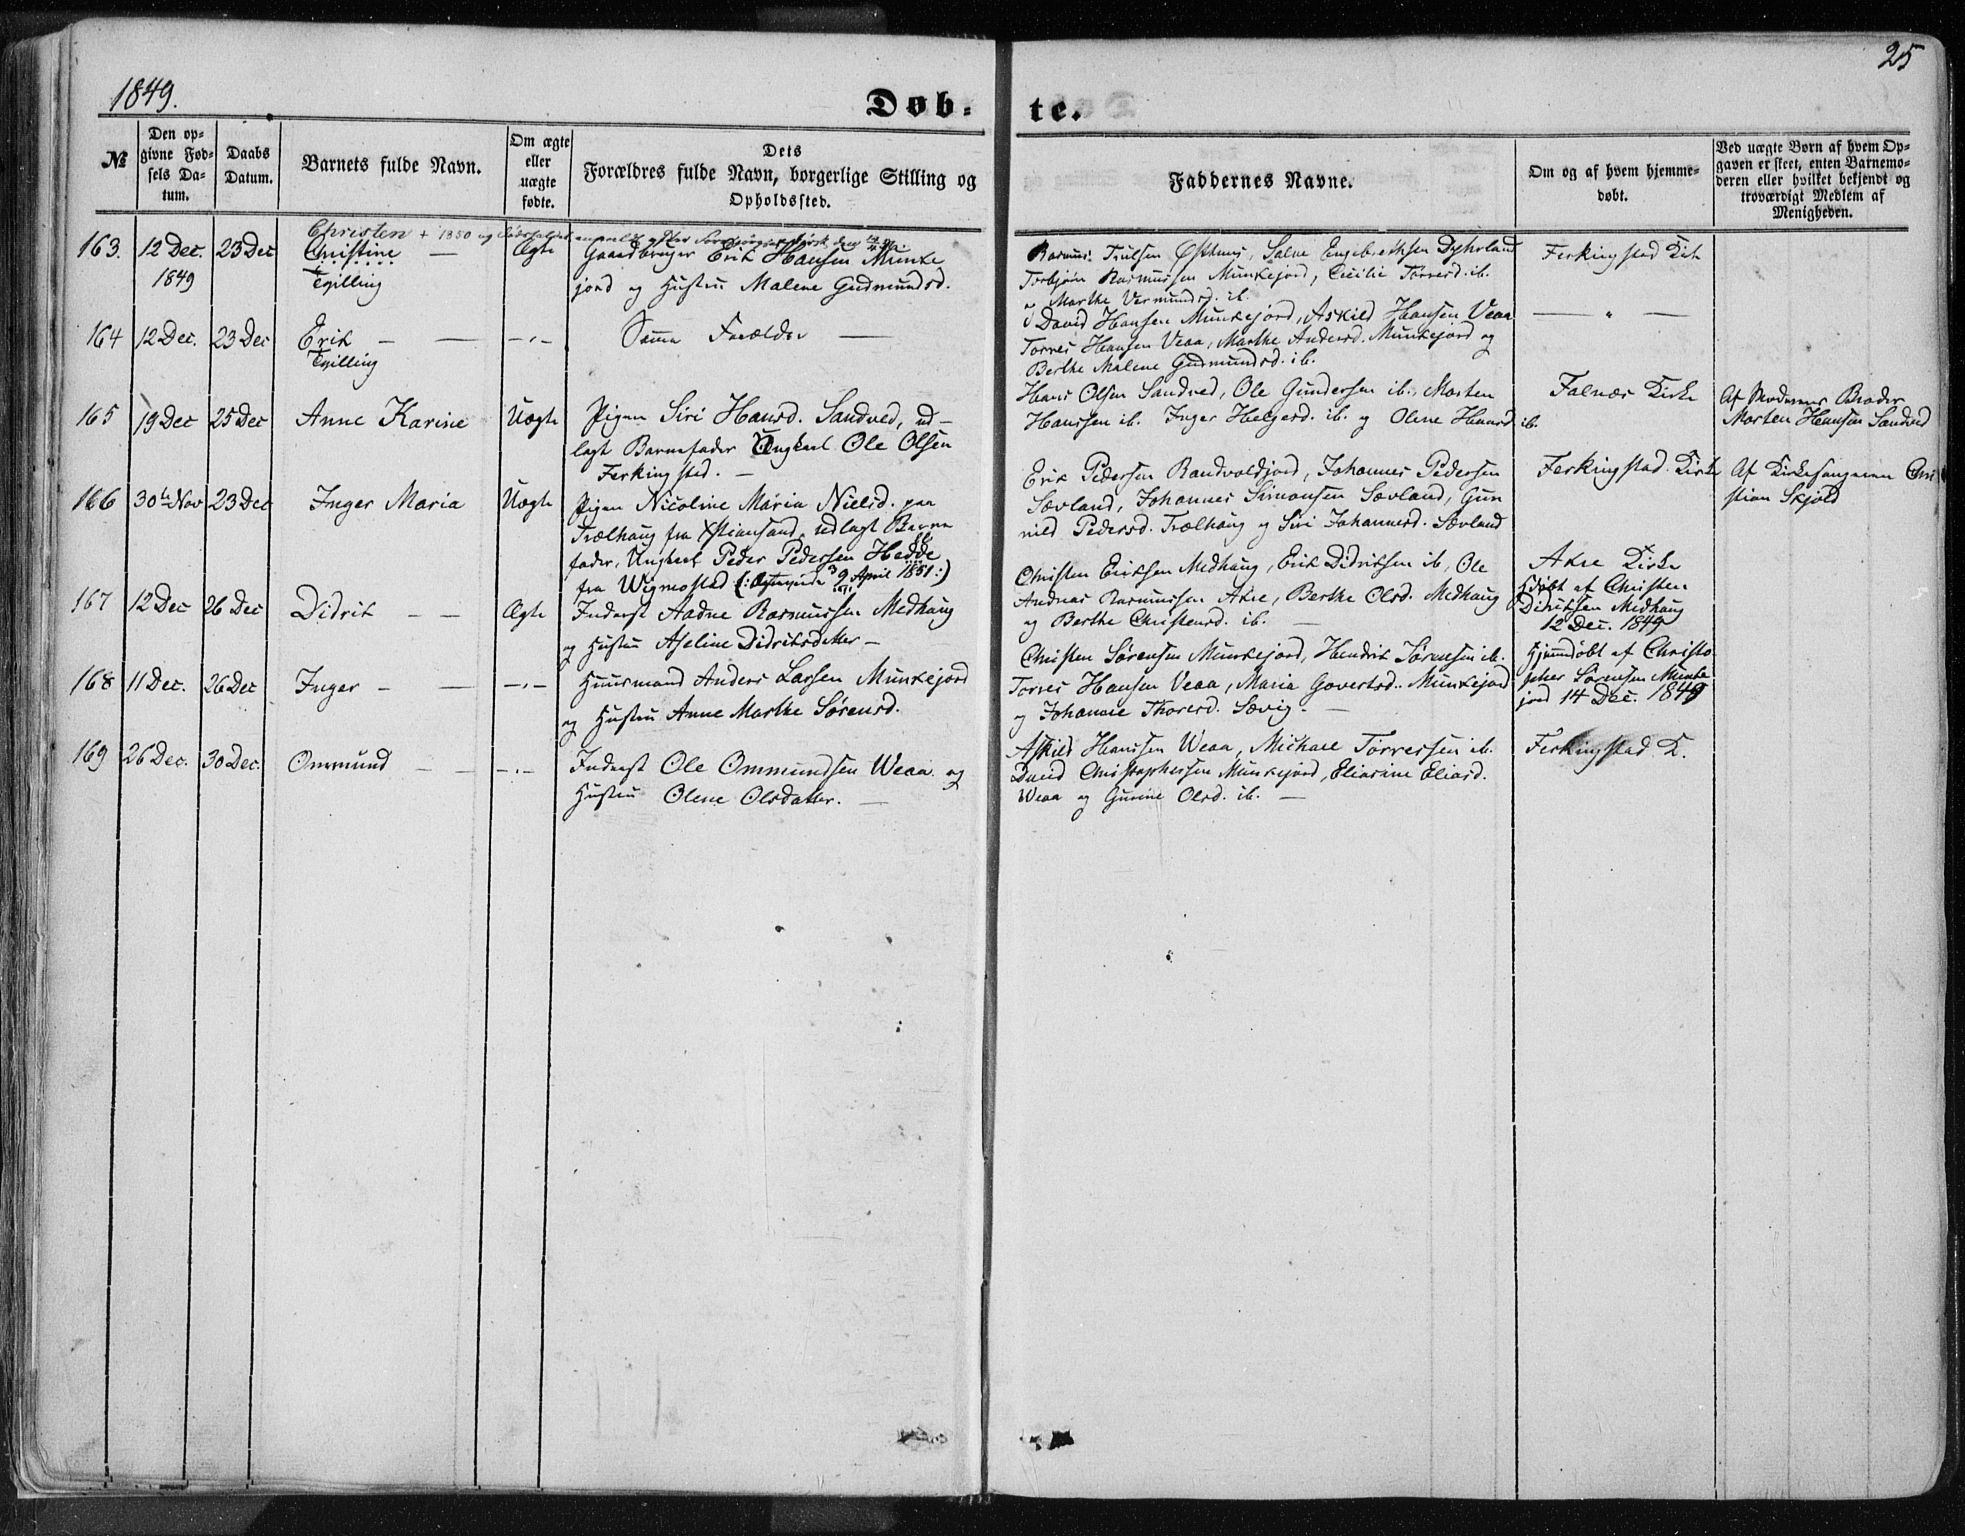 1849.
25
Døb-
te.
№
Den op-
givne Fød-
sels Da-
tum.
Daabs
Datum.
Barnets fulde Navn.
Om ægte
eller
uægte
fødte.
Dets
Forældres fulde Navn, borgerlige Stilling og
Opholdssted.
Faddernes Navne.
Om og af hvem hjemme-
døbt.
Ved uægte Børn af hvem Op-
gaven er skeet, enten Barnemo-
deren eller hvilket bekjendt og
troværdigt Medlem af
Menigheden.
Christen + 1850 og
163.
12 Dec.
1849
23 Dec
Christine —
Tvilling
Ægte
Gaardbruger Erik Hansen Munke
jord og Hustru Malene Gudmundsd.
Rasmus Trulsen Østhuus, Salve Engebrethsen Dyhrland
Torbjørn Rasmussen Munkejord, Cecilie Torresd. ib.
og Marthe Vermundsd. ib.
Ferkingstad Kir
164
12 Dec.
23 Dec
Erik — —
Tvilling
— „ —
Samme Forældre —
David Hansen Munkejord, Askild Hansen Veaa
Torres Hansen Veaa, Marthe Andersd. Munkejord og
Berthe Malene Gudmundsd. ib.
— " —
165
19 Dec
25 Dec
Anne Karine
Uægte
Pigen Siri Hansd. Sandved, ud-
lagt Barnefader Ungkarl Ole Olsen
Ferkingsted. —
Hans Olsen Sandved, Ole Gundersen ib. Morten
Hanssen ib. Inger Helgesd. ib. og Olene Hansd ib.
Falnæs Kirke
Af Moderens Broder
Morten Hansen Sandved
166
30te Nov
23 Dec
Inger Maria
Uægte
Pigen Nicoline Maria Nielsd. paa
Trælhaug fra Xstiansand, udlagt Barne
fader, Ungkarl Peder Pedersen Hedde
fra Wigmostad (: 9 April 1851 :)
Erik Pedersen Randvoldjord, Johannes Pedersen
Sævland, Johannes Simonsen Sævland, Gun
nild Pedersd. Trælhaug og Siri Johannesd. Sævland
Ferkingstad Kirke
Af Kirkesangeren Chri
stian Skjold
167
12 Dec
26 Dec
Didrik — —
Ægte
Inderst Aadne Rasmussen Medhaug
og Hustru Aseline Didriksdatter —
Christen Eriksen Medhaug, Erik Didriksen ib, Ole
Andreas Rasmussen Akre, Berthe Olsd. Medhaug
og Berthe Christensd. ib. —
Akre Kirke
Hjdøbt af Christen
Didriksen Medhaug
12 Dec. 1849
168
11 Dec.
26 Dec
Inger — —
— „ —
Huusmand Anders Larsen Munkejord
og Hustru Anne Marthe Sørensd.
Christen Sørensen Munkejord, Hendrik Sørensen ib.
Torres Hansen Veaa, Maria Govertsd. Munkejord
og Johanne Thoresd. Sævig. —
Hjemmdøbt af Christo
pher Sørensen Munke
jord 14 Dec. 1849
169
26 Dec.
30 Dec.
Ommund — —
— „ —
Inderst Ole Ommundsen Weaa og
Hustru Olene Olsdatter. —
Askild Hanssen Weaa, Michael Torressen ib.
David Christophersen Munkejord, Eliasine Eliasd.
Weaa og Gurine Olsd. ib. —
Ferkingstad K.